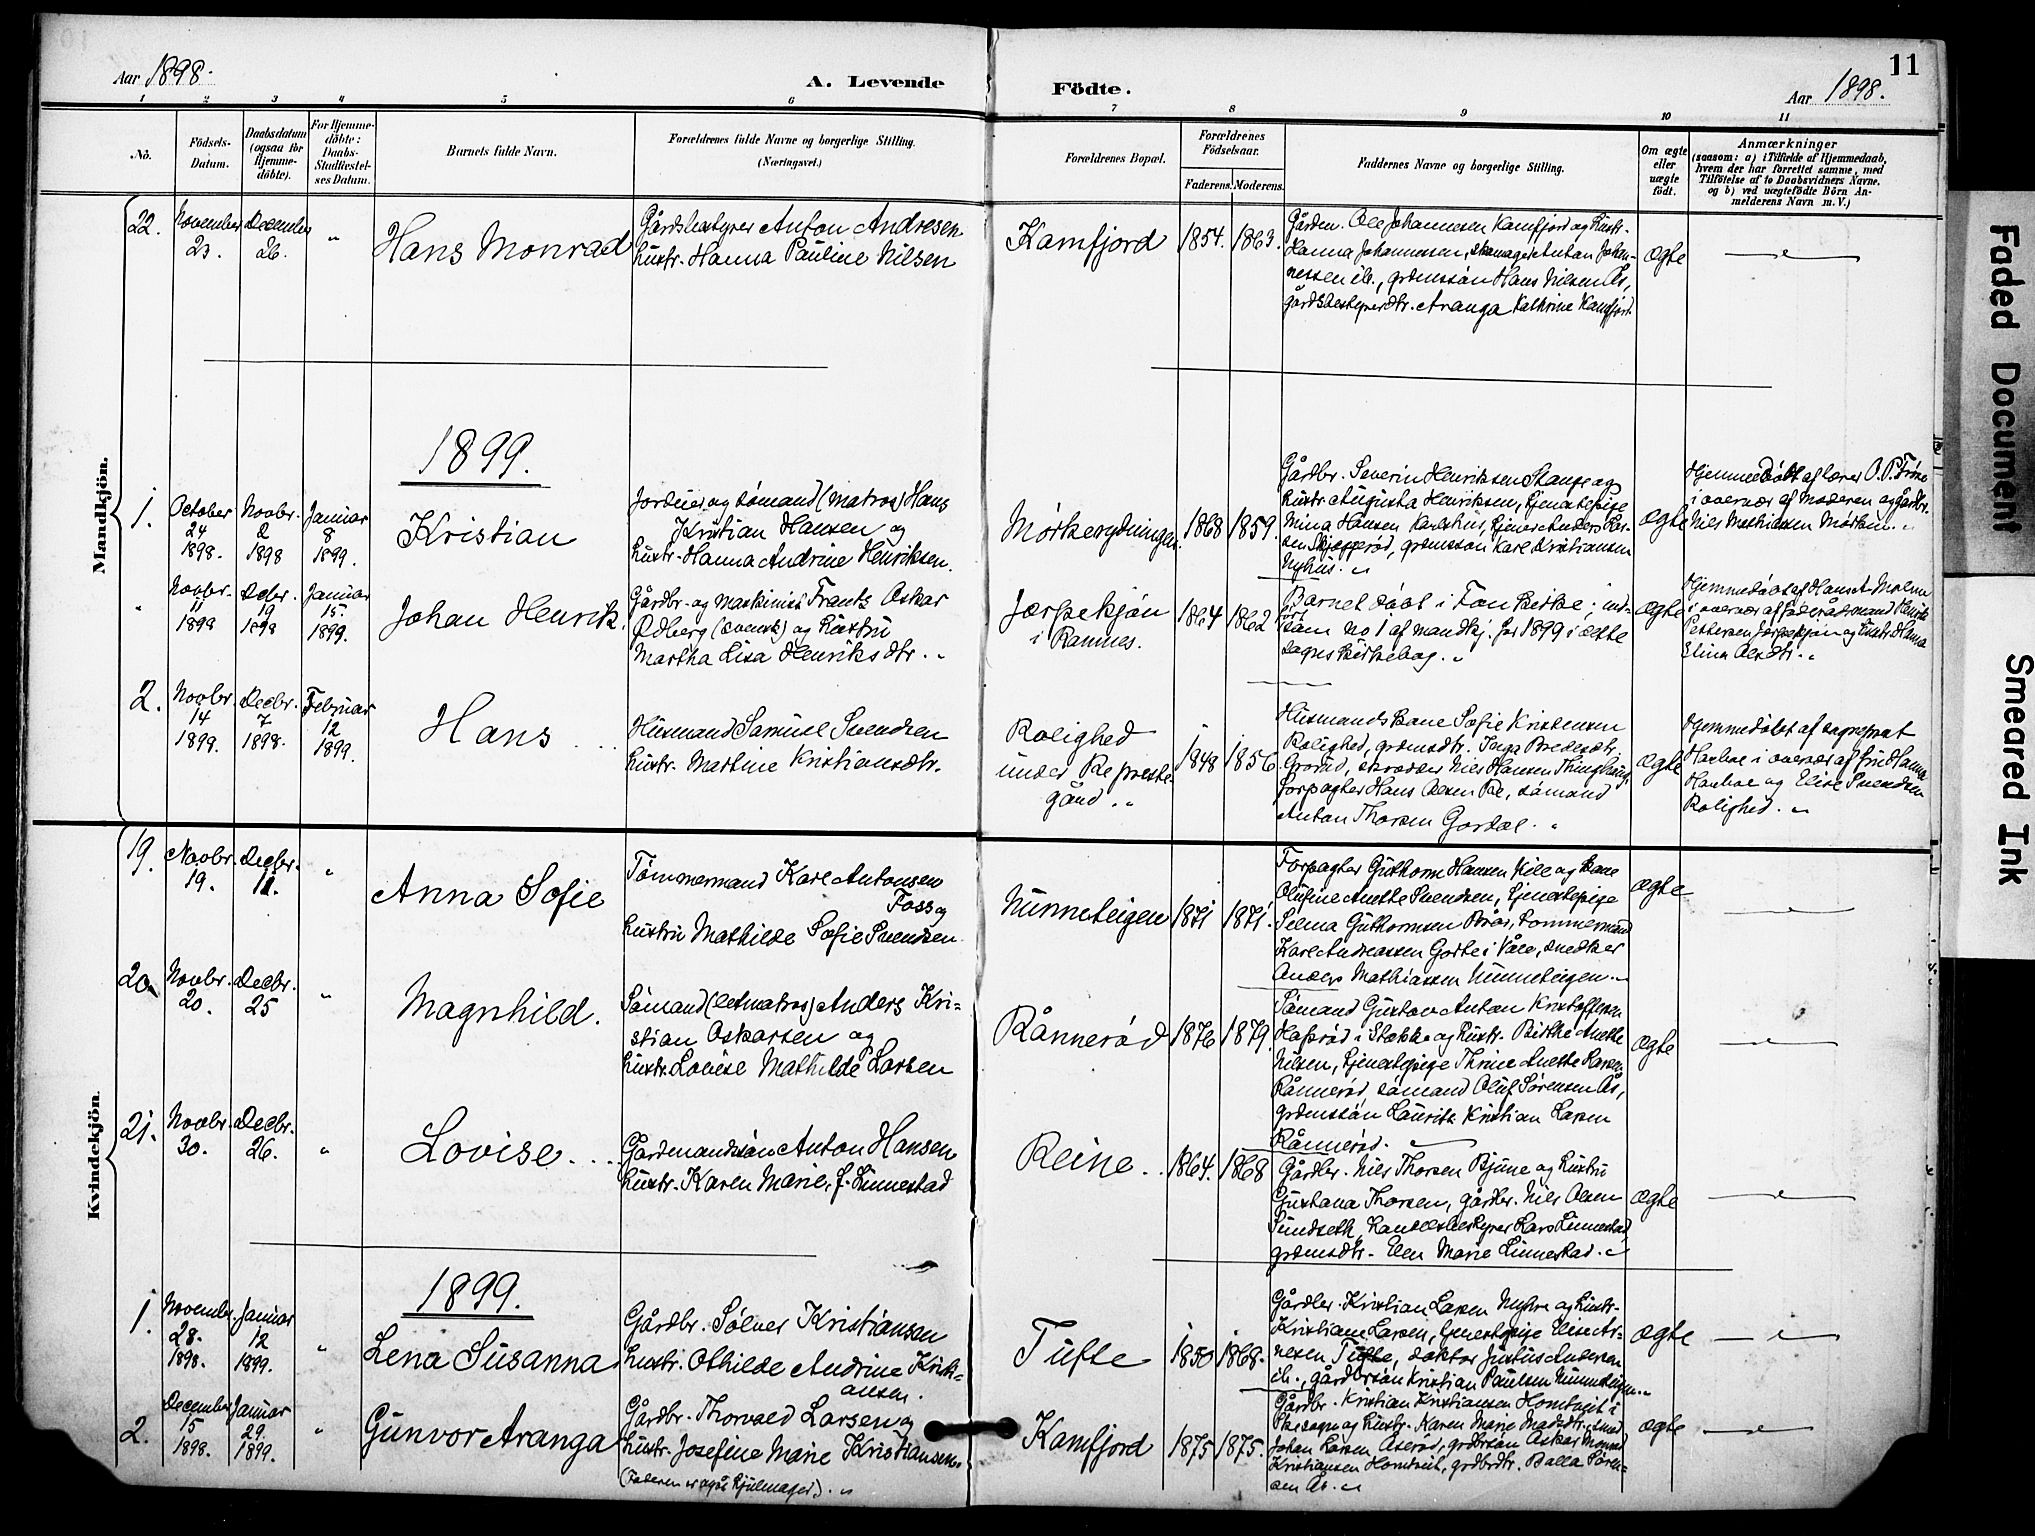 Aar 1898.
A. Levende
Födte.
Aar 1898.
11
1 2 3 4 5 6 7 8 9 10 11
No.
Födsels-
Datum.
Daabsdatum
(ogsaa for
Hjemme-
döbte).
For Hjemme-
döbte:
Daabs-
Stadfæstel-
ses Datum.
Barnets fulde Navn.
Forældrenes fulde Navne og borgerlige Stilling.
(Næringsvei.)
Forældrenes Bopæl.
Forældrenes
Födselsaar.
Faderens. Moderens.
Faddernes Navne og borgerlige Stilling.
Om ægte
eller
uægte
født.
Anmærkninger
(saasom: a) i Tilfælde af Hjemmedaab,
hvem der har forrettet samme, med
Tilføielse af to Daabsvidners Navne,
og b) ved uægtefödte Börn An-
melderens Navn m. V.)
Mandkjön.
22.
November
23.
December
26.
"
Hans Monrad
Gårdsbestyrer Anton Andresen
hustr. Hanna Pauline Nilsen
Kamfjord
1854. 1863.
Gårdm. Ole Johannesen Kamfjord og hustr.
Hanna Johannessen, skomager Anton Johan-
nessen ib., grdmssøn Hans Nilsen Ås,
gårdsbestyrerdtr. Aranga Kathrine Kamfjord
ægte
1899.
1.
October
24
1898.
Novbr.
2
1898
Januar
8
1899.
Kristian
Jordeier og sømand (matros) Hans
Kristian Hansen og
hustr. Hanna Andrine Henriksen.
Mørkerydningen.
1868 1859.
Gårdbr. Severin Henriksen Stange og
hustr. Augusta Henriksen, tjenestepige
Mina Hansen Karlshus, tjener Anders Lar-
sen Skjeggerød, grdmssøn Karl Kristiansen
Nyhus.
ægte
Hjemmedøbt af lærer O. P.
i overvær af moderen og gårdbr.
Nils Mathiasen Mørken.
"
Novbr.
11
1898
Decbr.
19
1898
Januar
15.
1899.
Johan Henrik.
Gårdbr. og maskinist Frants Oskar
Ødberg (svensk) og hustru
Martha Lisa Henriksdtr.
Jerpekjøn
i Ramnes.
1864 1862
Barnet døbt i Fon kirke; ind-
ført
som No 1 af mandkj. for 1899 i dette
sogns kirkebog.
ægte
Hjemmedøbt af Hans A. Molen
i overvær af føderådsmand Henrik
Pettersen Jerpekjøn og hustr. Hanna
Elina Olsdtr.
2.
Novbr.
14
1899.
Decbr.
7
1898.
Februar
12
1899.
Hans
Husmand Samuel Svendsen
hustr. Martine Kristiansdtr.
Rolighed
under Re præste-
gård.
1848 1856.
Husmandskone Sofie Kristensen
Rolighed, grdmsdtr. Inga Bredesdtr.
skrædder Nils Hansen
forpagter Hans Olsen Re, sømand
Anton Thorsen Gordal.
ægte
Hjemmedøbt af sognepræst
Harboe i overvær af fru Hanna
Harboe og Elise Svendsen
Rolighed.
Kvindekjön.
19.
Novbr.
19.
Decbr.
11.
"
Anna Sofie
Tømmermand Karl Antonsen
Foss og
hustru Mathilde Sofie Svendsen.
Nunneteigen
1871 1871.
Forpagter Guthorm Hansen Kile og kone
Olufine Anette Svendsen, tjenestepige
Selma Guthormsen Brår, tømmermand
Karl Andreassen Gorte i Våle, snedker
Anders Mathiassen Nunneteigen.
ægte
20.
Novbr.
20.
Decbr.
25
"
Magnhild.
Sømand (letmatros) Anders Kri-
stian Oskarsen og
hustr. Lovise Mathilde Larsen
Rånnerød
1876 1879.
Sømand Gustav Anton Kristoffersen
Hafsrød i Stokke og hustr. Birthe Anette
Nilsen, tjenestepige Thrine Anette Larsen
Rånnerød, sømand Oluf Sørensen Ås,
grdmssøn Laurits Kristian Larsen
Rånnerød.
ægte
21.
Novbr.
30.
Decbr.
26.
"
Lovise.
Gårdmandssøn Anton Hansen
hustr. Karen Marie, f. Linnestad
Reine.
1864. 1868
Gårdbr. Nils Thorsen Bjune og hustru
Gustava Thorsen, gårdbr. Nils Olsen
Sundseth, handelsbestyrer Lars Linnestad,
grdmsdtr. Elen Marie Linnestad.
ægte
1899.
1.
November
28.
1898.
Januar
12
1899.
"
Lena Susanna
Gårdbr. Sølver Kristiansen
hustr. Othilde Andrine Kristi-
ansen.
Tufte
1850 1868.
Gårdbr. Kristian Larsen Nyhre og hustr.
Kristiane Larsen, tjenestepige Elise Ar-
nesen Tufte, doktor Justus Andersen
ib., gårdbrsøn Kristian Paulsen Nunneteigen.
ægte
2.
December
15
1898.
Januar
29.
1899.
"
Gunvor Aranga
Gårdbr. Thorvald Larsen og
hustr. Josefine Marie Kristiansen.
(Faderen er også hjulmager).
Kamfjord
1875 1875.
Gårdbr. Kristian Kristiansen Homtveit i
og hustr. Karen Marie Madsdtr., smed
Johan Larsen Aserød, grdbrsøn Oskar Monrad
Kristiansen Homtveit, grdbrdtr. Balla Søren-
sen Ås.
ægte
Faded Document
Smeared Ink